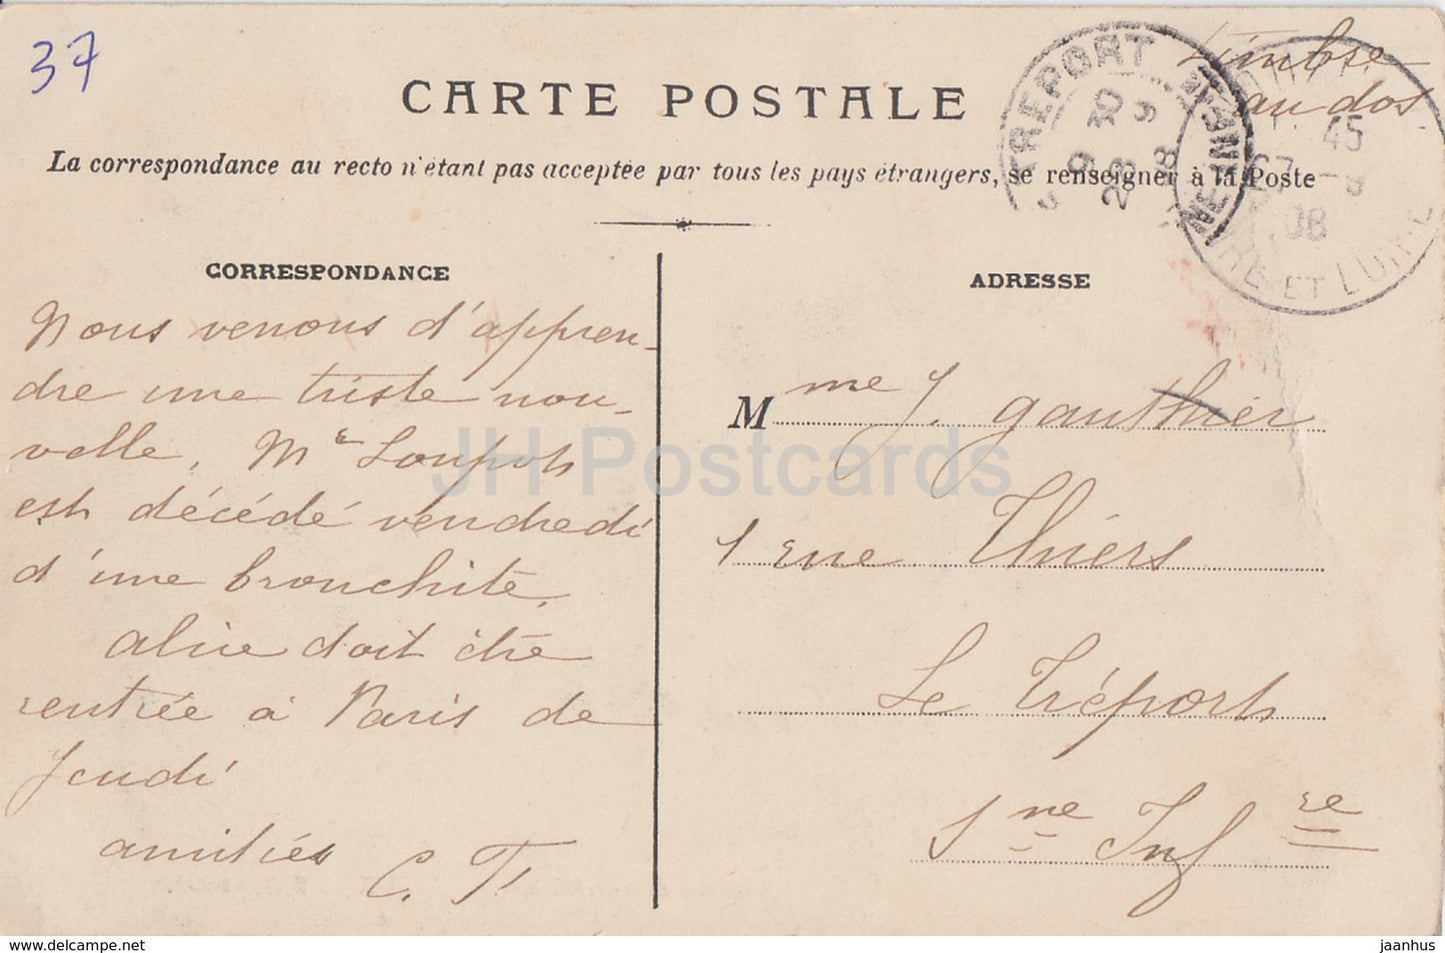 37
Timbre
au dos.
CARTE POSTALE
La correspondance au recto n'étant pas acceptée par tous les pays étrangers, se renseigner à la Poste
TREPORT
SEINE INF
45
08
ET LOIRE
CORRESPONDANCE
Nous venons d'appren-
dre une triste nou-
velle, Mr Loupot
est décédé vendredi
d'une bronchite.
Alice doit être
rentrée à Paris de
Jeudi
amitiés
C. T.
ADRESSE
Mme J. Gauthier
1 rue Thiers
Le Tréport
Sne Infre
JH Postcards
delcampe.net
jaanhus